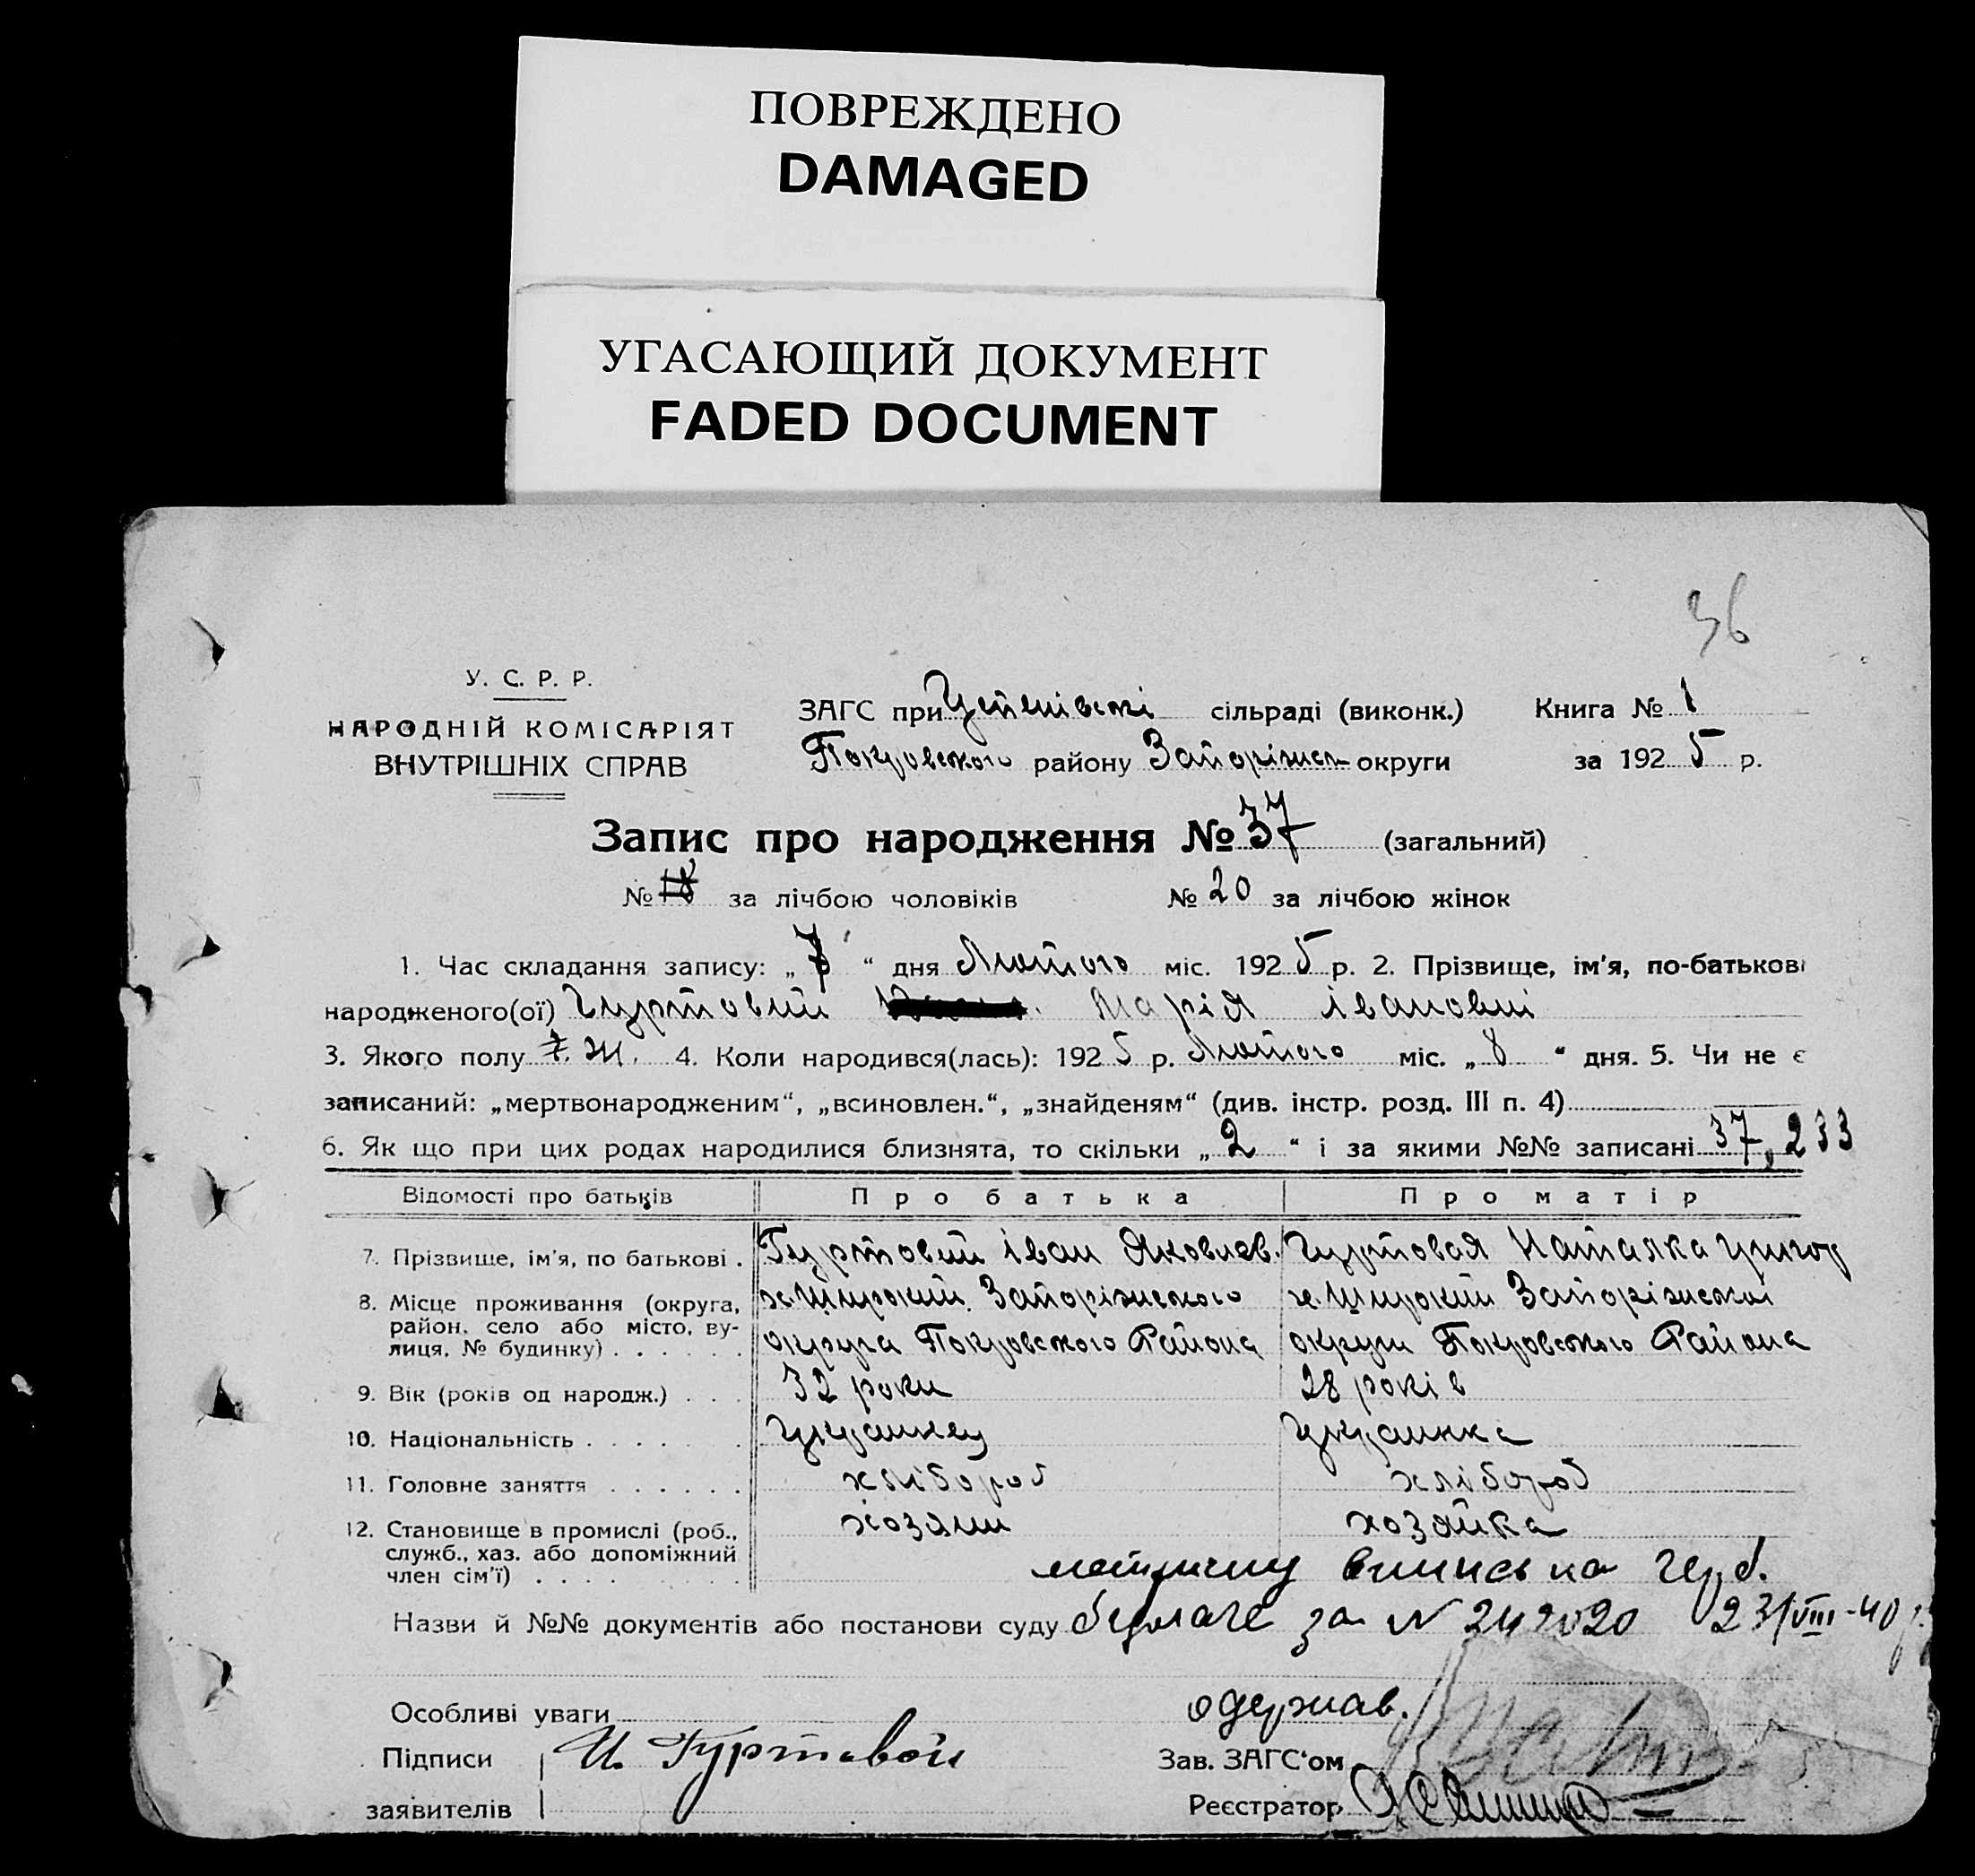 ПОВРЕЖДЕНО
DAMAGED
УГАСАЮЩИЙ ДОКУМЕНТ
FADED DOCUMENT
36
У. С. Р. Р.
НАРОДНІЙ КОМІСАРІЯТ
ВНУТРІШНІХ СПРАВ
ЗАГС при Успенівскі сільраді (виконк.) Книга № 1
Покровського району Запоріжск округи за 1925 р.
Запис про народження № 37 (загальний)
№ 18 за лічбою чоловіків № 20 за лічбою жінок
1. Час складання запису: „ 7 “ дня Лютого міс. 1925 р. 2. Прізвище, ім'я, по-батькові
народженого(ої) Гуртовий Марія івановні
3. Якого полу ж. 4. Коли народився(лась): 1925 р. Лютого міс. „ 8 “ дня. 5. Чи не є
записаний: „мертвонародженим“, „всиновлен.“, „знайденям“ (див. інстр. розд. III п. 4)
6. Як що при цих родах народилися близнята, то скільки „ 2 “ і за якими №№ записані 37, 233
Відомості про батьків Про батька Про матір
7. Прізвище, ім'я, по батькові . Гуртовий іван Яковлев. Гуртовая Наталка григор
8. Місце проживання (округа, х. Широкий Запоріжского х. Широкий Запоріжскої
район, село або місто, ву-
лиця, № будинку) . . . . . . округа Покровского Района округи Покровского Района
9. Вік (років од народж.) . . . 32 роки 28 років
10. Національність . . . . . . Украинец Украинка
11. Головне заняття . . . . . . хлібороб хлібороб
12. Становище в промислі (роб., хозяин хозяйка
служб., хаз. або допоміжний
член сім'ї) . . . . . . метричну випись на герб.
Назви й №№ документів або постанови суду бумаге за N 242020 23/VIII-40 р.
Особливі уваги одержав.
Підписи И. Гуртовой Зав. ЗАГС'ом
заявителів Реєстратор